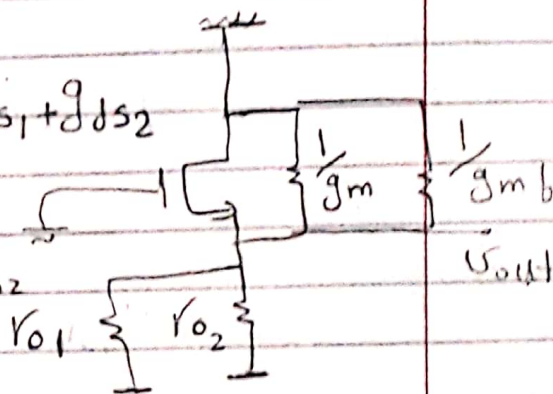 s₁+gds₂
1/gm
1/gmb
vout
2
ro₁
ro₂